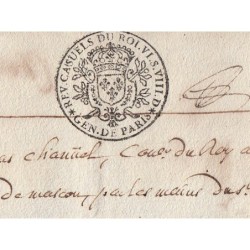 ★ REV. CASUELS DU ROI. VI. S. VIII. D.
★ GEN. DE PARIS ★
as chanüel, Con.er du Roy a
de mascon, par les mains du s.r